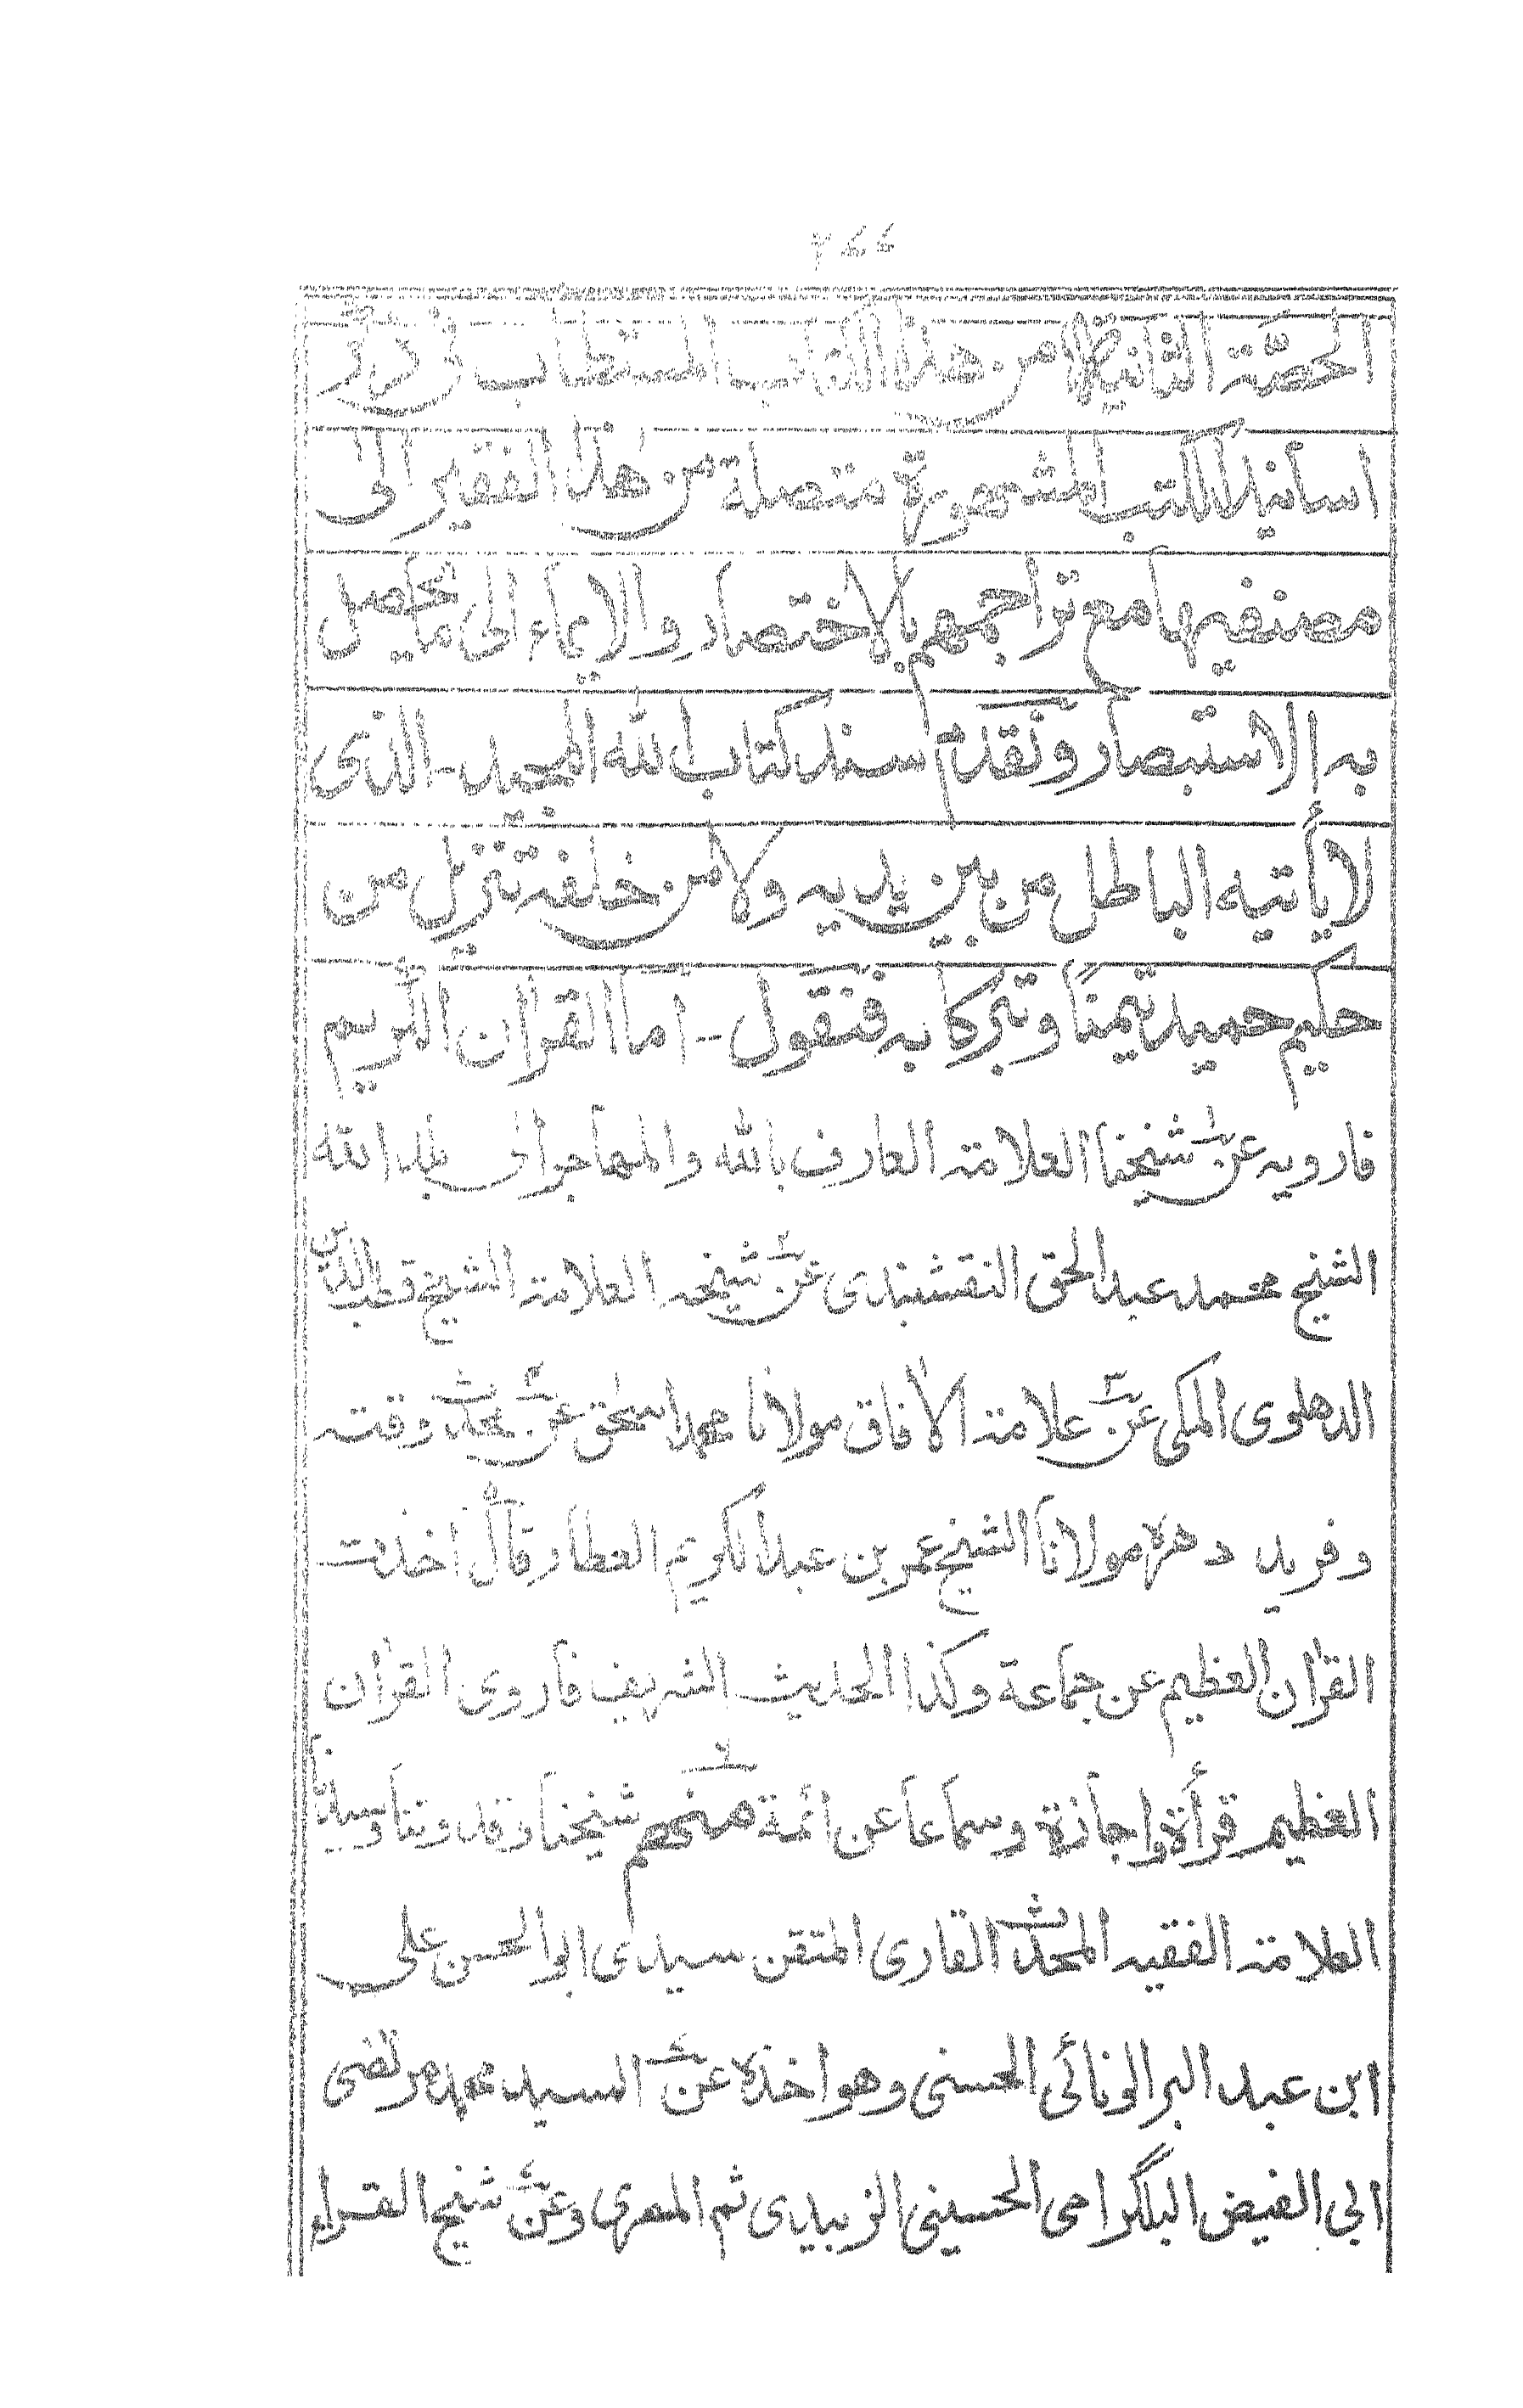 الحصّة الثانية من هذا الكتاب المستطاب فى ذكر
اسانيد الكتب المشهورة متصلة من هذا الفقير الى
مصنفيها مع تراجمهم بالاختصار والايماء الى ما يحصل
به الاستبصار ونقدم سند كتاب الله المجيد - الذى
لا يأتيه الباطل من بين يديه ولا من خلفه تنزيل من
حكيم حميد تيمنًا وتبركا به فنقول -- اما القران الكريم
فارويه عن شيخنا العلامة العارف بالله والمهاجر الى بلد الله
الشيخ محمد عبد الحق النقشبندى عن شيخه العلامة الشيخ قطب الدين
الدهلوى المكى عن علامة الافاق مولانا محمد اسحق عن محدث وقته
وفريد دهره مولانا الشيخ عمر بن عبد الكريم العطار قال اخذت
القران العظيم عن جماعة وكذا الحديث الشريف فاروى القران
العظيم قرأة واجازة وسماعا عن ائمة منهم شيخنا وقدوتنا وسيدنا
العلامة الفقيه المحدث القارى المتقن سيدى ابو الحسن على
ابن عبد البر الونائى الحسنى وهو اخذه عن السيد محمد مرتضى
ابى الفيض البلگرامى الحسينى الزبيدى ثم المصرى وعن شيخ القراء